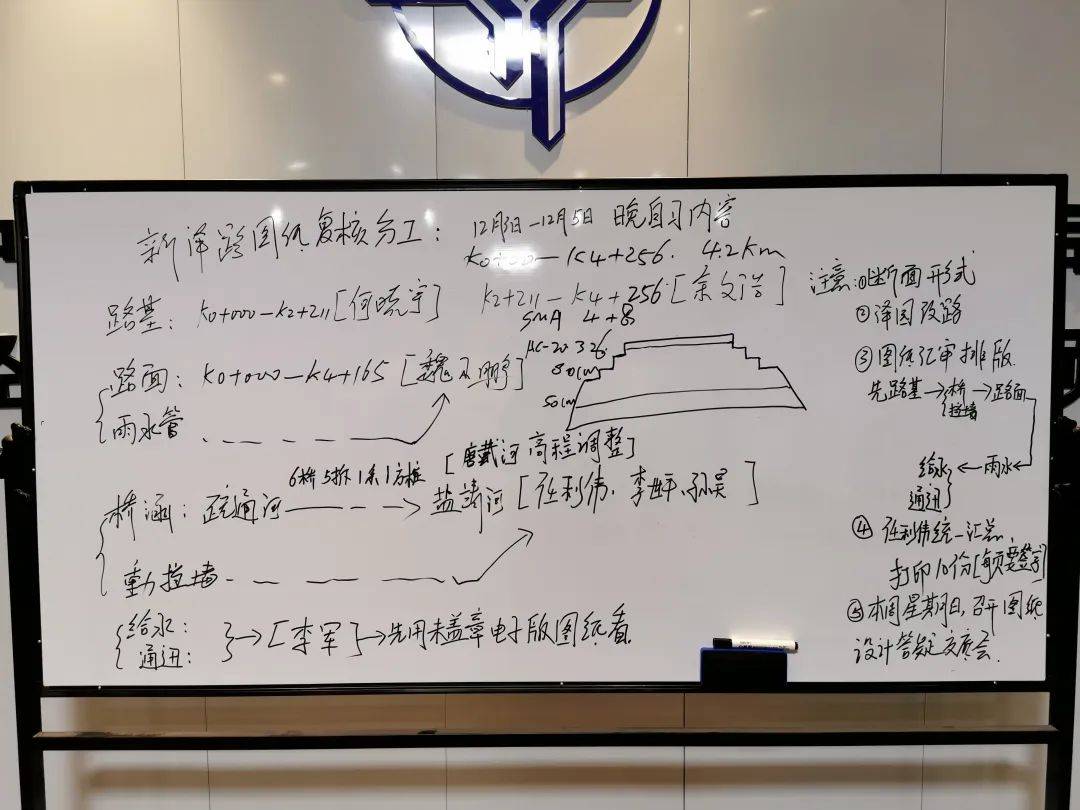 新泽路图纸复核分工：
12月3日-12月5日 晚自习内容
K0+000-K4+256. 4.2Km
路基：K0+000-K2+211[何晓宇]
K2+211-K4+256[余文浩]
SMA 4+8
AC-20 3 26
80cm
50cm
路面：K0+000-K4+165
雨水管
6桥5拆1条1方桩
[唐戴河高程调整]
桥涵：疏通河
盐靖河[任利伟、李坪、孙昊]
重力挡墙
给水：
通讯：
[李军]→先用未盖章电子版图纸看
注意：①断面形式
②泽园改路
③图纸汇审排版
先路基→桥→路面
挡墙
给水←雨水
通讯
④任利伟统一汇总，
打印10份[每页要签字]
⑤本周星期日，召开图纸
设计答疑交底会.